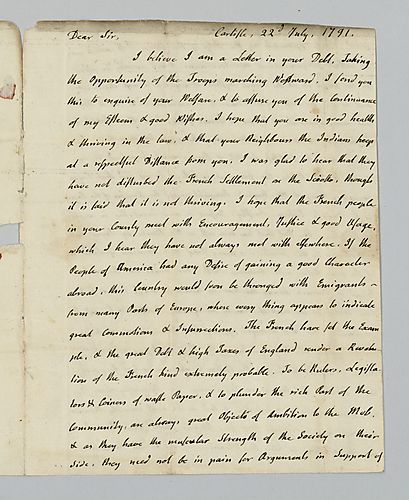 Dear Sir, Carlisle, 22d July, 1791.
I believe I am a Letter in your Debt. Taking
the Opportunity of the Troops marching Westward, I send you
this to enquire of your Welfare, & to assure you of the Continuance
of my Esteem & good Wishes. I hope that you are in good health
& thriving in the law, & that your Neighbours the Indians keep
at a respectful Distance from you. I was glad to hear that they
have not disturbed the French Settlement on the Scioto, though
it is said that it is not thriving. I hope that the French people
in your County meet with Encouragement, Justice & good Usage,
which I hear they have not always met with elsewhere. If the
People of America had any Desire of gaining a good Character
abroad, this Country would soon be thronged with Emigrants
from many Parts of Europe, where every thing appears to indicate
great Commotions & Insurrections. The French have set the Exam
ple, & the great Debt & high Taxes of England render a Revolu
tion of the French kind extremely probable. To be Rulers, Legisla
tors & Coiners of waste Paper, & to plunder the rich Part of the
Community, are always great Objects of Ambition to the Mob,
& as they have the muscular Strength of the Society on their
Side, they need not be in pain for Arguments in Support of